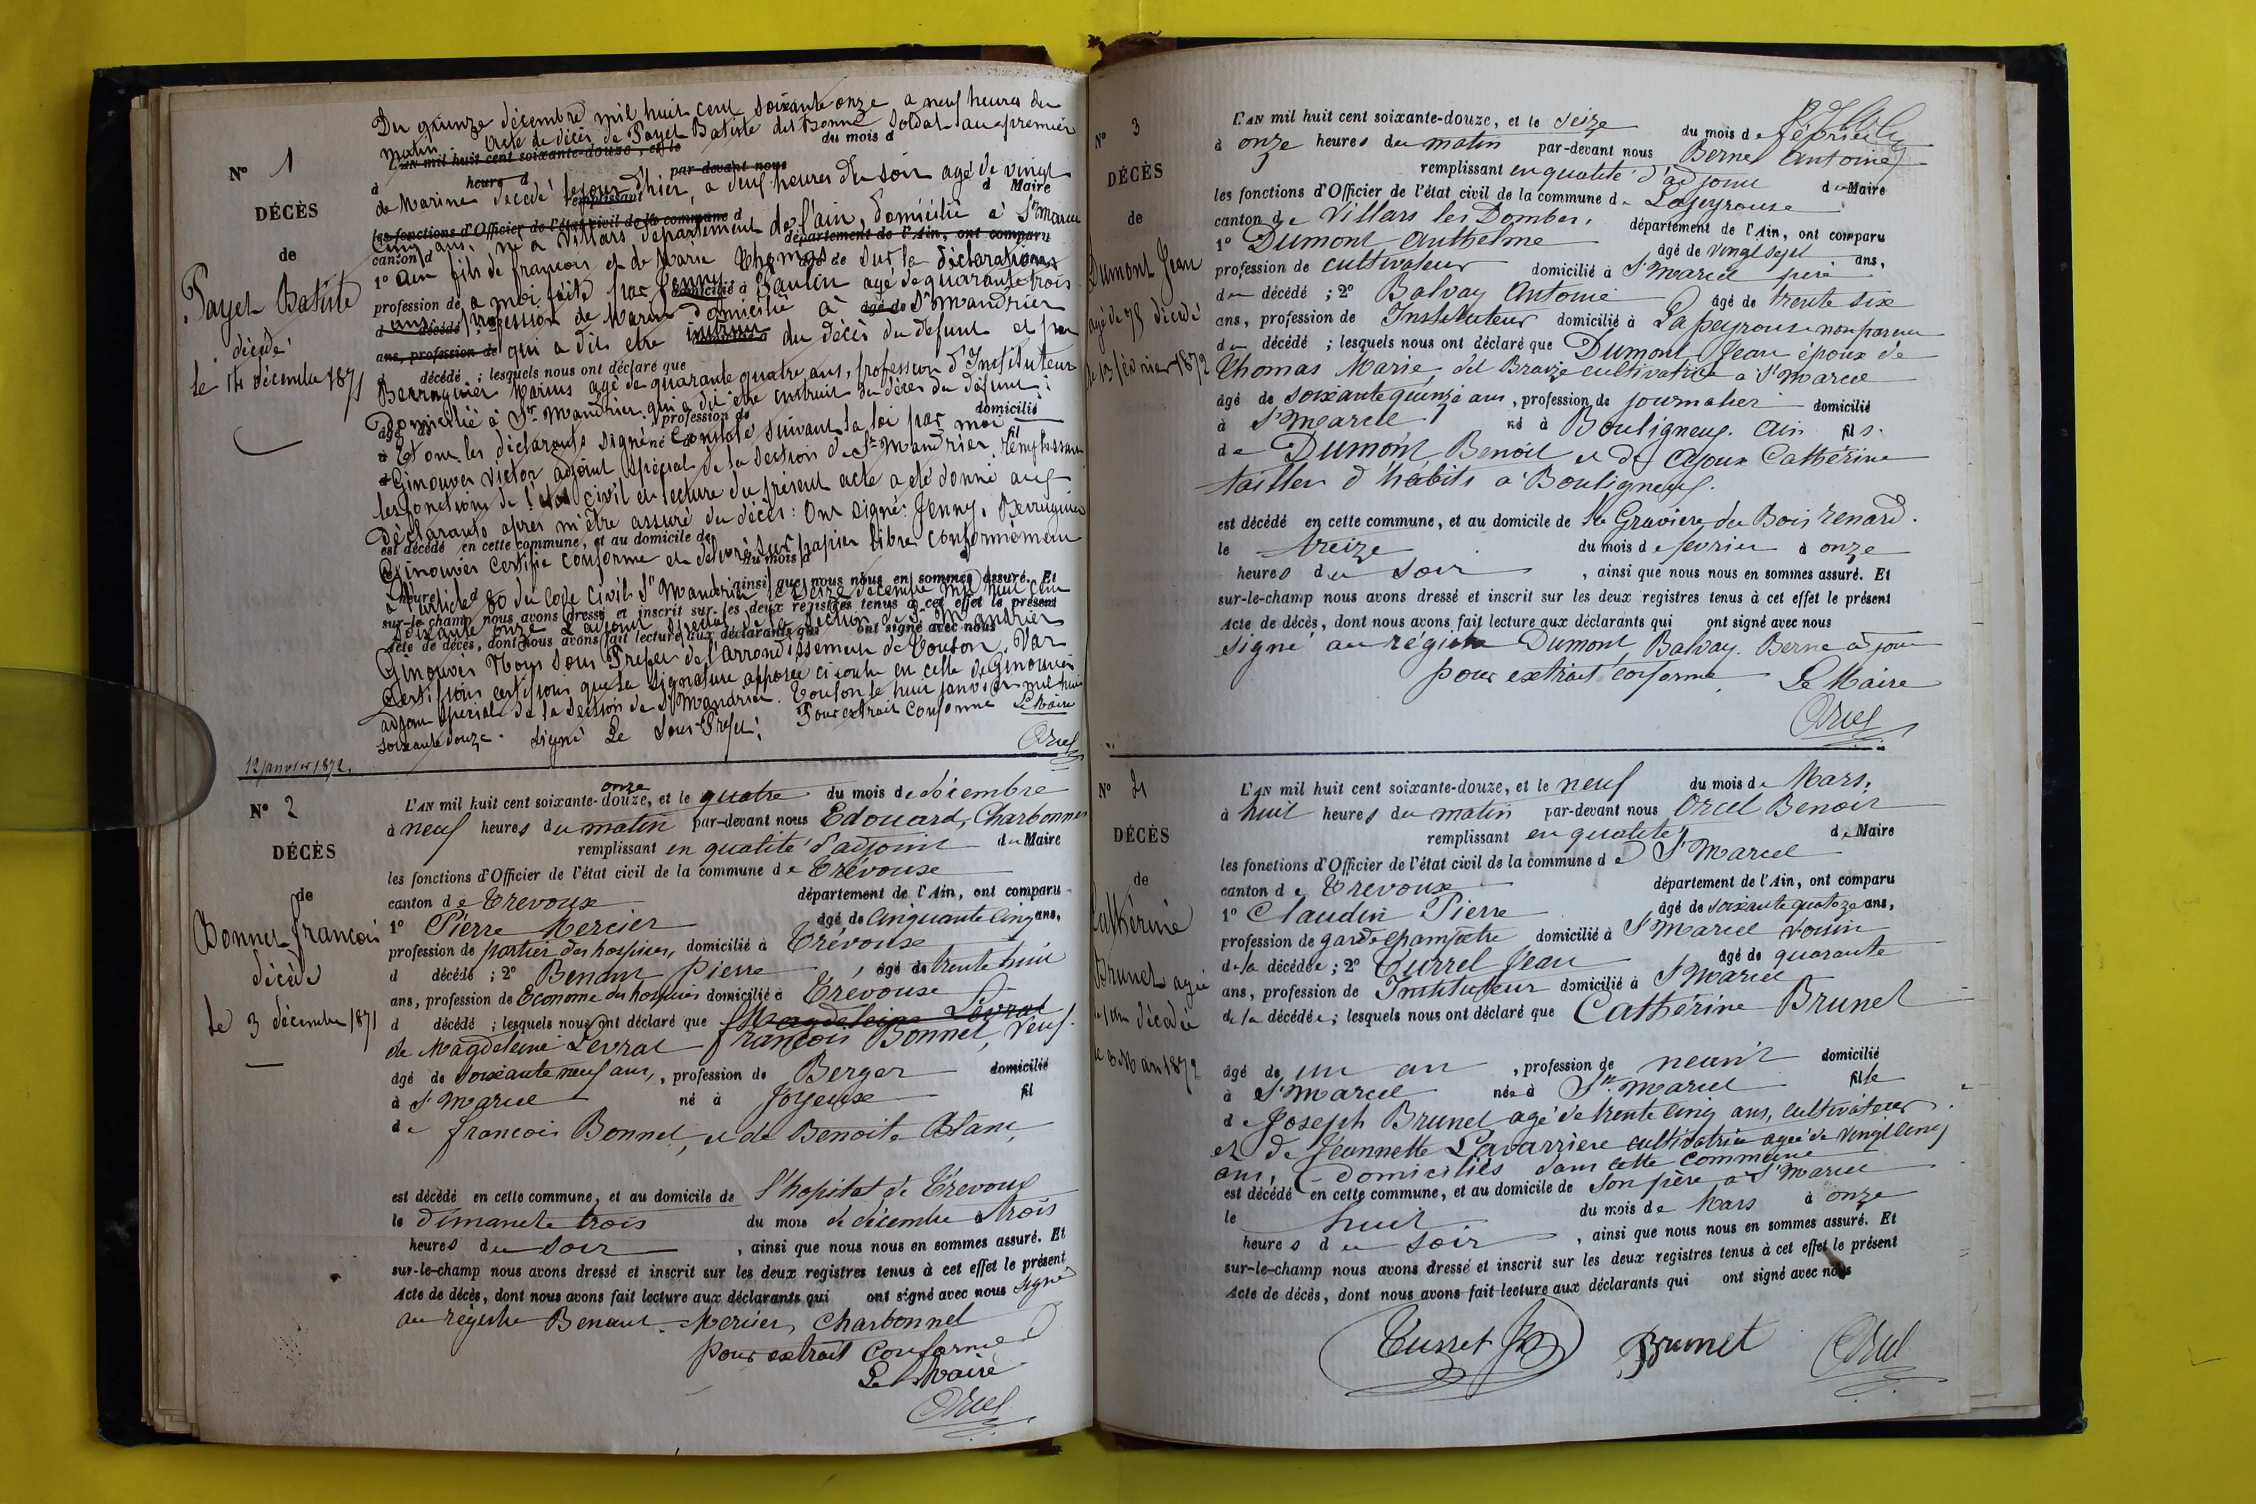 N° 1
DÉCÈS
de
Payet Batiste
décédé
le 14 décembre 1871
Du quinze décembre mil huit cent soixante onze a neuf heures du
matin. Acte de décès de Payet Batiste dit Bonne soldat au premier
du mois d
L'AN mil huit cent soixante-douze, et le
heure d
par-devant nous
à
de Marine décédé le jour d'hier, a neuf heures du soir agé de vingt
remplissant
d Maire
les fonctions d'Officier de l'état civil de la commune d
cinq ans, né a Villars département de l'ain, domicilié a St Marcel
canton d
département de l'Ain, ont comparu
1° ain fils de francois et de Marie Thomas
âgé de
sur la déclaration
profession de
a moi faite par Jenny Paulin agé de quarante trois
domicilié à
ans profession de Marin domicilié à St Mandrier
d décédé
âgé de
ans, profession de
qui a dit etre du décès du defunt et par
d décédé ; lesquels nous ont déclaré que
Berruguier Marius agé de quarante quatre ans, profession d'Instituteur
domicilié à St Mandrier qui a dit etre instruit du décès du défunt :
âgé de
profession de
domicilié
à
né à
fil
Et ont les déclarants signé. Constaté suivant la loi par moi
Ginouves Victor adjoint spécial de la section de St Mandrier, remplissant
les fonctions de l'état civil et lecture du présent acte a été donné aux
Déclarants apres m'être assuré du décès : Ont signé : Jenny, Berruguier
est décédé en cette commune, et au domicile de
Ginouves certifié conforme et délivré sur papier libre conformément
du mois d
heure d
ainsi que nous nous en sommes assuré. Et
a l'article 80 du code civil. St Mandrier le seize décembre mil huit cent
sur-le-champ nous avons dressé et inscrit sur les deux registres tenus à cet effet le présent
soixante onze L'adjoint spécial de la section de St Mandrier
Acte de décès, dont nous avons fait lecture aux déclarants qui ont signé avec nous
Ginouves Nous sous Prefet de l'arrondissement de Toulon. Var
Certifions que la signature apposée ci contre est celle de Ginouves
adjoint spécial de la section de St Mandrier. Toulon le huit janvier mil huit
soixante douze. Signé Le Sous Prefet: Pour extrait conforme Le Maire
Orcel
12 janvier 1872.
N° 2
DÉCÈS
de
Bonnet francois
décédé
Le 3 décembre 1871
L'AN mil huit cent soixante-douze, et le quatre du mois de décembre
onze
à neuf heures du matin par-devant nous Edouard, Charbonnet
remplissant en qualité d'adjoint du Maire
les fonctions d'Officier de l'état civil de la commune de Trévoux
canton de Trevoux département de l'Ain, ont comparu
1° Pierre Mercier âgé de cinquante cinq ans,
profession de portier des hospices, domicilié à Trévoux
d décédé ; 2° Benant Pierre, âgé de trente huit
ans, profession de Econome des hospices domicilié à Trévoux
d décédé ; lesquels nous ont déclaré que Magdeleine Levrat
de Magdeleine Levrat francois Bonnet, veuf
âgé de soixante neuf ans, profession de Berger domicilié
à St Marcel né à Joyeux fil
de francois Bonnet, et de Benoite Blanc,
est décédé en cette commune, et au domicile de l'hopital de Trevoux
le dimanche trois du mois de décembre à trois
heures du soir, ainsi que nous nous en sommes assuré. Et
sur-le-champ nous avons dressé et inscrit sur les deux registres tenus à cet effet le présent
Acte de décès, dont nous avons fait lecture aux déclarants qui ont signé avec nous signé
au régistre Benant. Mercier, Charbonnet
pour extrait conforme
Le Maire
Orcel
N° 3
DÉCÈS
de
Dumont Jean
agé de 75 décédé
le 13 février 1872
L'AN mil huit cent soixante-douze, et le seize du mois de février
à onze heures du matin par-devant nous Berne Antoine
remplissant en qualité d'adjoint du Maire
les fonctions d'Officier de l'état civil de la commune de Lapeyrouse
canton de Villars les Dombes, département de l'Ain, ont comparu
1° Dumont Anthelme âgé de vingt sept ans,
profession de cultivateur domicilié à St Marcel frère
du décédé ; 2° Balvay Antoine âgé de trente six
ans, profession de Instituteur domicilié à Lapeyrouse non parent
du décédé ; lesquels nous ont déclaré que Dumont, Jean époux de
Thomas Marie, dit Braize cultivatrice a St Marcel
âgé de soixante quinze ans, profession de journalier domicilié
à St Marcel né à Bouligneux. Ain fils.
de Dumont Benoit et de Ajoux Catherine
tailleur d'habits a Bouligneux.
est décédé en cette commune, et au domicile de la Graviere du Bois renard.
le treize du mois de février à onze
heures du soir, ainsi que nous nous en sommes assuré. Et
sur-le-champ nous avons dressé et inscrit sur les deux registres tenus à cet effet le présent
Acte de décès, dont nous avons fait lecture aux déclarants qui ont signé avec nous
signé au régistre Dumont, Balvay. Berne adjoint
pour extrait conforme Le Maire
Orcel
N° 4
DÉCÈS
de
Catherine
Brunet agée
d'un an décédée
le 8 Mars 1872
L'AN mil huit cent soixante-douze, et le neuf du mois de Mars,
à huit heures du matin par-devant nous Orcel Benoit
remplissant en qualité de Maire
les fonctions d'Officier de l'état civil de la commune de St Marcel
canton de Trevoux département de l'Ain, ont comparu
1° Claudin Pierre âgé de soixante quatoze ans,
profession de garde champetre domicilié à St Marcel voisin
de la décédée ; 2° Turrel Jean âgé de quarante
ans, profession de Instituteur domicilié à St Marcel
de la décédée ; lesquels nous ont déclaré que Catherine Brunet
âgé de un an, profession de neant domicilié
à St Marcel née à St Marcel fille
de Joseph Brunet agé de trente cinq ans, cultivateur
et de Jeannette Lavarriere cultivatrice agée de vingt cinq
ans, domiciliés dans cette commune
est décédé en cette commune, et au domicile de son père a St Marcel
le huit du mois de Mars à onze
heures du soir, ainsi que nous nous en sommes assuré. Et
sur-le-champ nous avons dressé et inscrit sur les deux registres tenus à cet effet le présent
Acte de décès, dont nous avons fait lecture aux déclarants qui ont signé avec nous
Turrel Jn Brunet Orcel